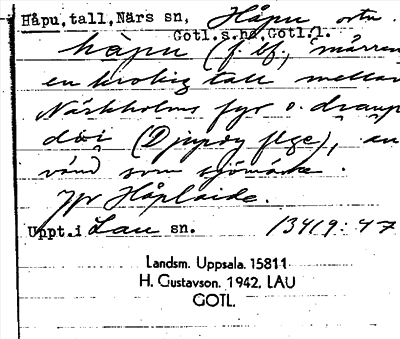 Håpu, tall, Närs sn, Håpu ortn.
Gotl.s.hd, Gotl.l.
håpu (f. bf.,
en krokig tall mellan
Närkholms fyr o.
(Djupdy flge), an
vänd som sjömärke.
Jfr Håplaide.
Uppt. i Lau sn. 13419:47
Landsm. Uppsala. 15811
H. Gustavson. 1942, LAU
GOTL.